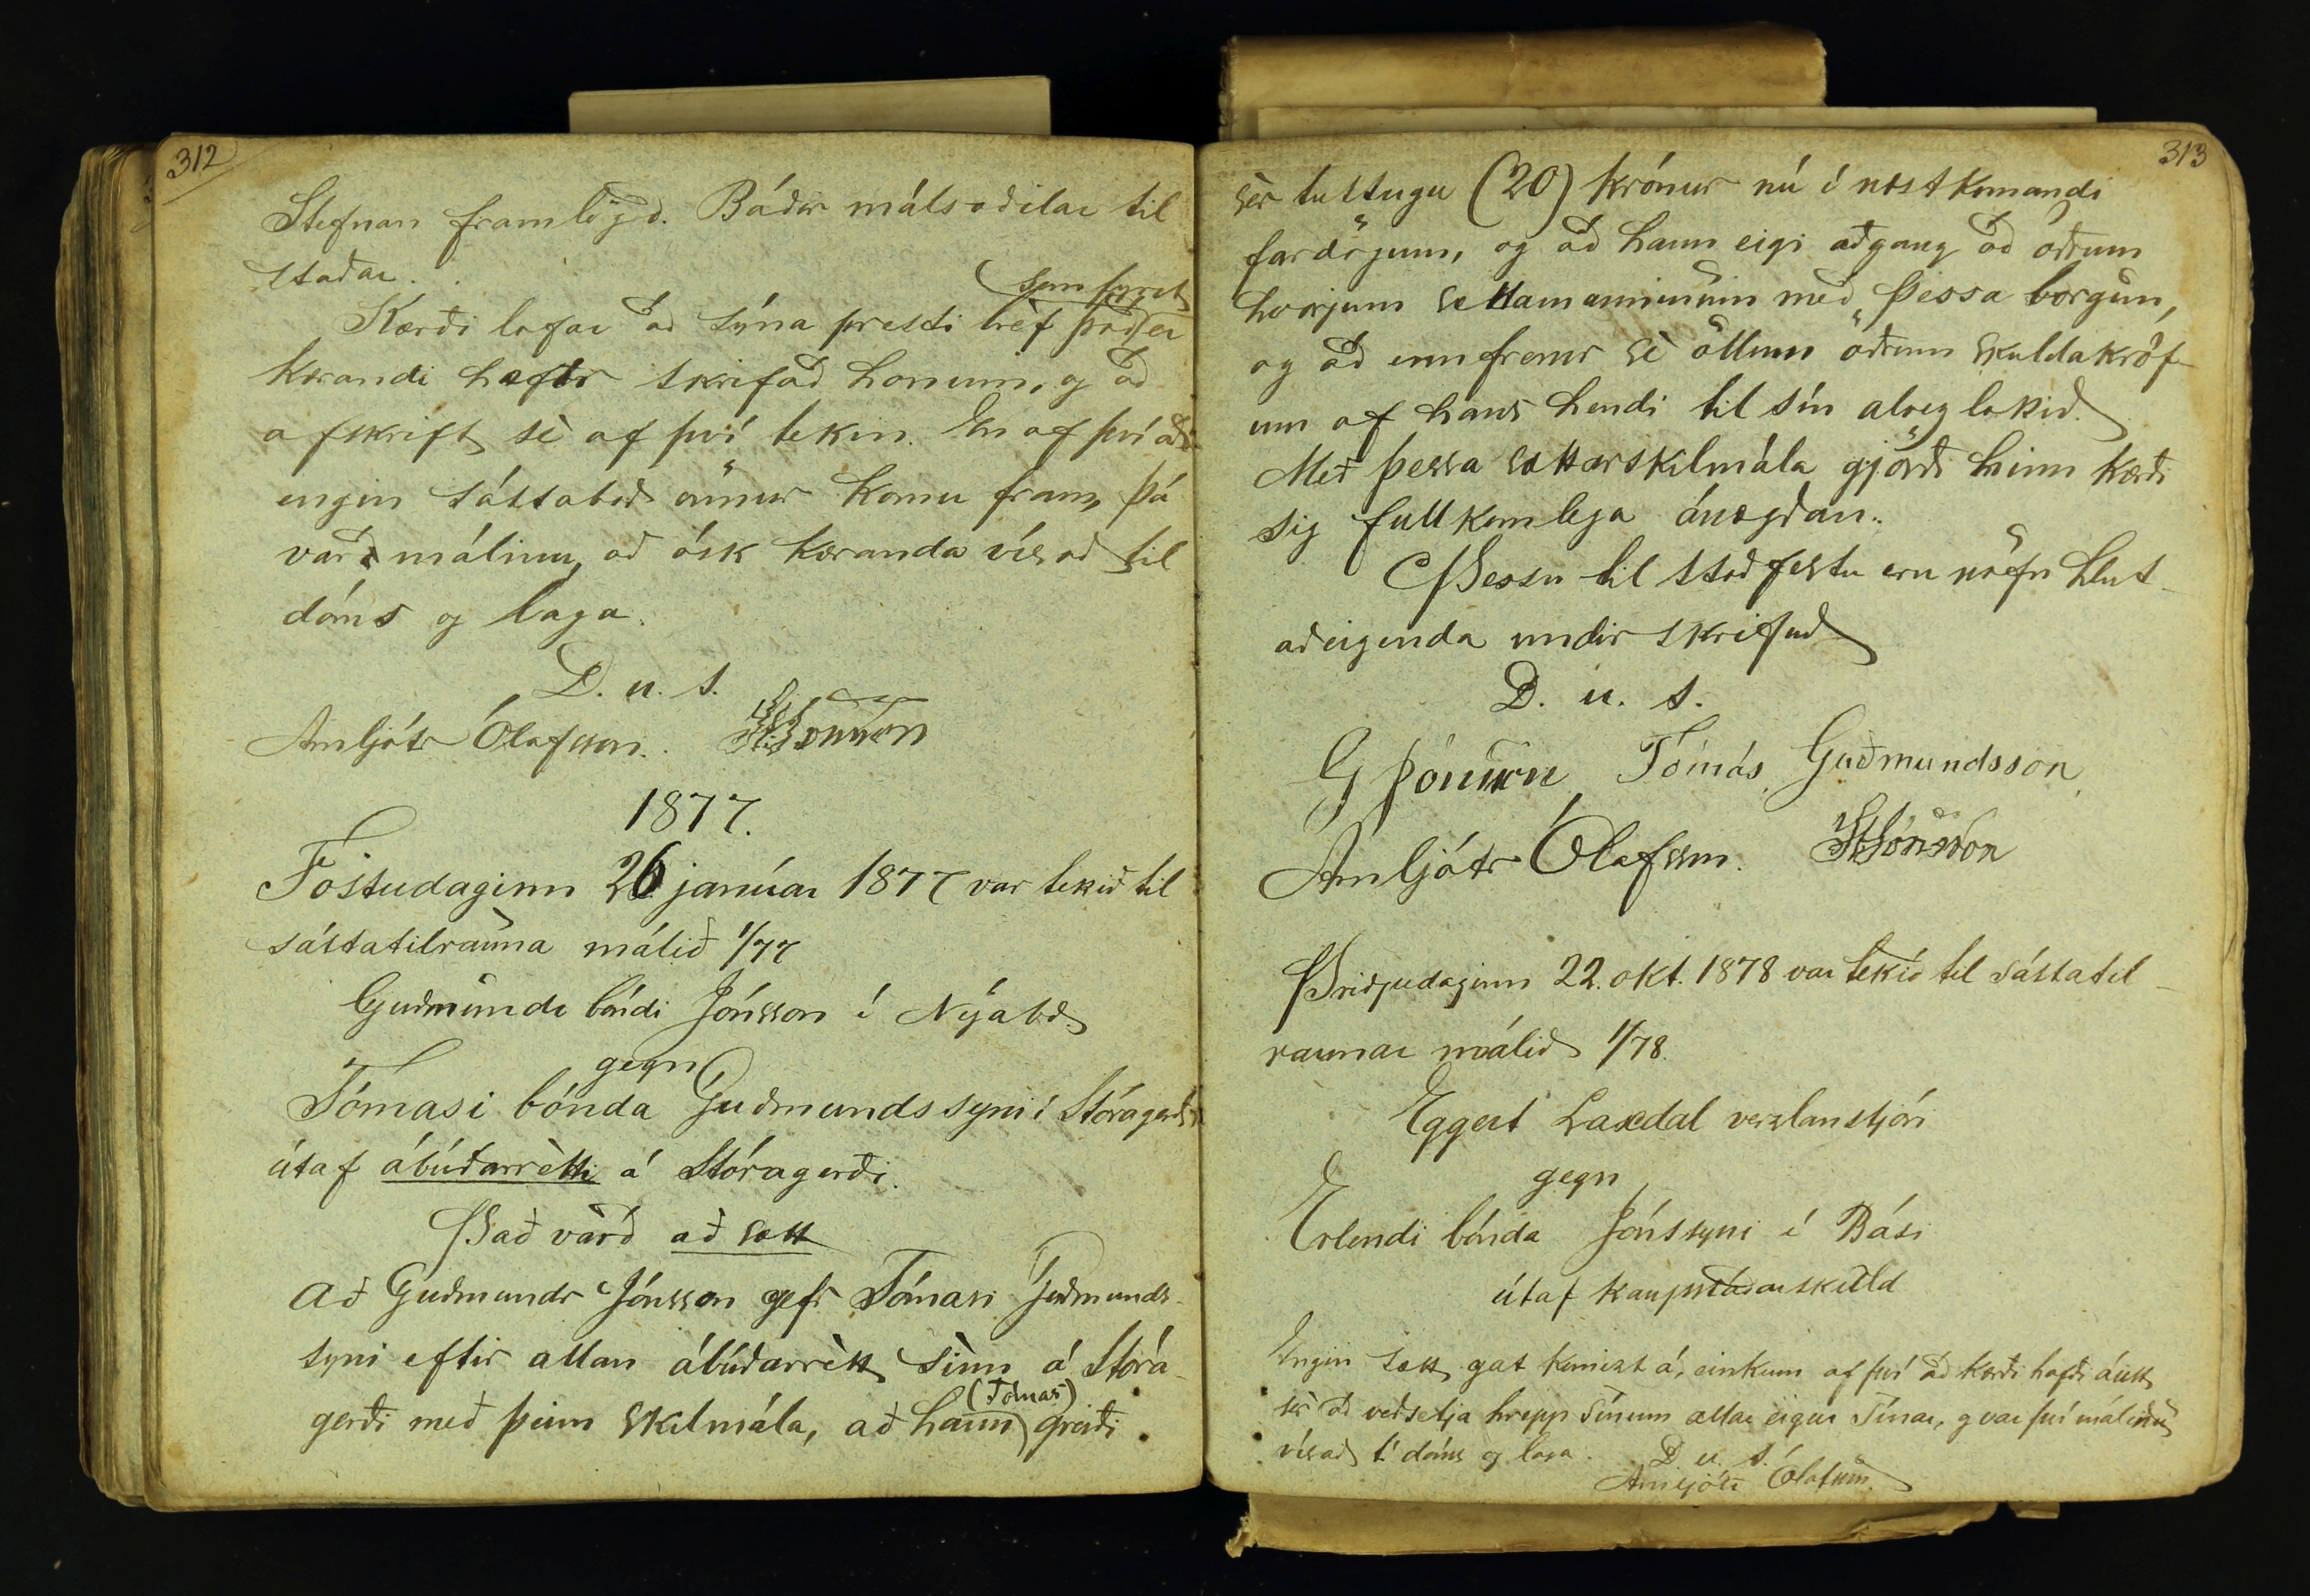 312
Stefnan framlögð. Báðir málsaðilar til
staðar.
(sem fyrst)
Kærði lofar að sýna presti bréf það er
kærandi hefir skrifað honum, og að
afskrift sè af því tekin. En af því að
engin sáttaboð önnur komu fram, þá
varð málinu, að ósk kæranda vísað til
dóms og laga.
D. u. s.
Arnljótr Ólafsson. StJónsson
1877.
Föstudaginn 26 janúar 1877 var tekið til
sáttatilrauna málið 1/77
Guðmundr bóndi Jónsson í Nýabæ
gegn
Tómasi bónda Guðmundssyni í Stóragerði
útaf ábúðarrètti á Stóragerði.
Það varð að sætt
Að Guðmundr Jónsson gefr Tómasi Guðmunds-
syni eftir allan ábúðarrètt sinn á Stóra-
(Tómas)
gerði með þeim skilmála, að hann greiði
313
sèr tuttugu (20) krónur nú í næstkomandi
fardögum, og að hann eigi aðgang að öðrum
hvorjum sættamanninum með þessa borgun,
og að enn fremr sè öllum öðrum skuldakröf-
um af hans hendi til sín alveg lokið.
Með þessa sættarskilmála gjörði hinn kærði
sig fullkomlega ánægðan.
Þessu til staðfestu eru nöfn hlut-
aðeigenda undir skrifuð
D. u. s.
G Jónsson Tómás Guðmundsson
Arnljótr Ólafsson. StJónsson
Þriðjudaginn 22. okt. 1878 var tekið til sáttatil-
raunar málið 1/78.
Eggert Laxdal verzlanstjóri
gegn
Erlendi bónda Jónssyni í Bási
útaf kaupstaðarskuld
Engin sætt gat komizt á, einkum af því að kærði hafði áskt
sèr að veðsetja hrepp sínum allar eigur sínar, og var því málinu
vísað til dóms og laga. D. u. s.
Arnljótr Ólafsson.